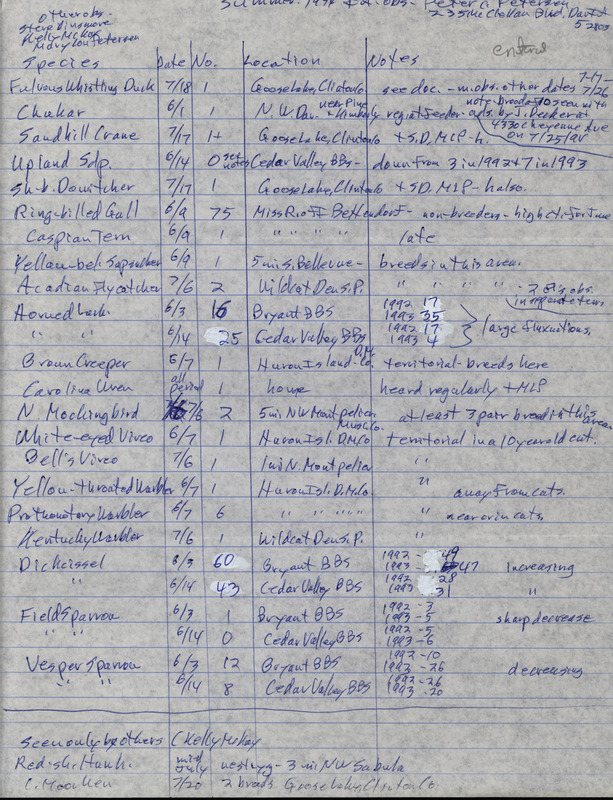 Summer 1994 Obs - Peter C. Petersen
Other obs.
Steve Dinsmore
Kelly McKay
Mary Lou Petersen
235 McClellan Blvd, Dav.
52803
entered
Species Date No. Location Notes
Fulvous Whistling Duck 7/18 1 Goose Lake, Clinton Co see doc. - m. obs. other dates 7-17 7/26
Chukar 6/1 1 N.W. Dav. near Pine + Kimberly reg. at feeder note brood 10 seen with ads. by J. Decker at 4330 Cheyenne Ave on 7/25/94
Sandhill Crane 7/17 1+ Goose Lake, Clinton Co + S.D, MLP - h.
Upland Sdp. 6/14 0 see notes Cedar Valley BBS - down from 3 in 1992 + 7 in 1993
Sh-b. Dowitcher 7/17 1 Goose Lake, Clinton Co + SD, MLP - h also.
Ring-billed Gull 6/9 75 Miss R. off Bettendorf - non-breeders - high ct. for June
Caspian Tern 6/9 1 " " " " late
Yellow-bel. Sapsucker 6/9 1 5 mi s. Bellevue - breeds in this area.
Acadian Flycatcher 7/6 2 Wildcat Den S.P. " " " " - 2 obs.
Horned Lark 6/3 16 Bryant BBS 1992 17 1993 35
" " 6/14 25 Cedar Valley BBS 1992 17 1993 4 large fluxuations.
Brown Creeper 6/7 1 Huron Island - D.M. Co. territorial - breeds here
Carolina Wren all period 1 home heard regularly + MLP
N. Mockingbird 7/6 2 5 mi NW Montpelier Musc. Co. at least 3 pair breed in this area
White-eyed Vireo 6/7 1 Huron Isl. D.M. Co territorial in a 10 year old cut.
Bell's Vireo 7/6 1 1 mi N. Montpelier "
Yellow-throated Warbler 6/7 1 Huron Isl. D.M. Co. " away from cuts.
Prothonotary Warbler 6/7 6 " " " " " near or in cuts
Kentucky Warbler 7/6 1 Wildcat Den S.P. "
Dickcissel 6/3 60 Bryant BBS 1992 - 49 1993 - 47 increasing
" 6/14 43 Cedar Valley BBS 1992 - 28 1993 31 "
Field Sparrow 6/3 1 Bryant BBS 1992 - 3 1993 - 5 sharp decrease
" " 6/14 0 Cedar Valley BBS 1992 - 5 1993 - 6
Vesper Sparrow 6/3 12 Bryant BBS 1992 - 10 1993 - 26 decreasing
" " 6/14 8 Cedar Valley BBS 1992 - 26 1993 - 20
Seen only by others (Kelly McKay
Red-sh. Hawk. mid July nesting - 3 mi NW Sabula
C. Moorhen 7/20 2 broods Goose Lake, Clinton Co.